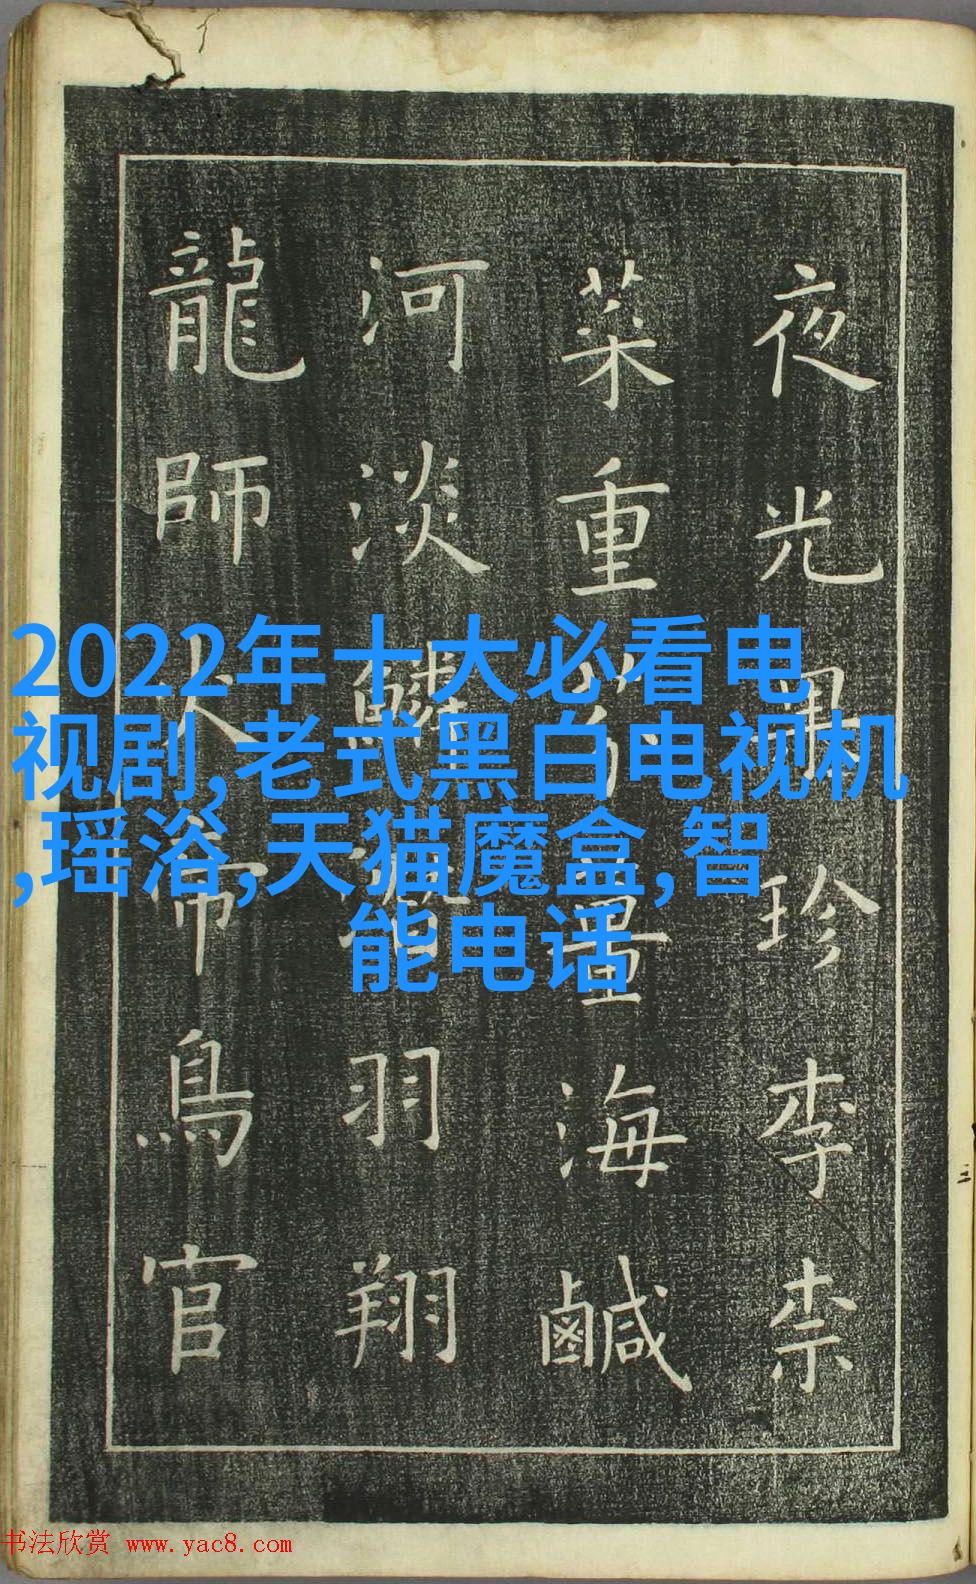 夜光果珍李柰
菜重芥薑海鹹
河淡鱗潛羽翔
龍師火帝鳥官
2022年十大必看电
视剧,老式黑白电视机
,瑶浴,天猫魔盒,智
能电话
书法欣赏 www.yac8.com